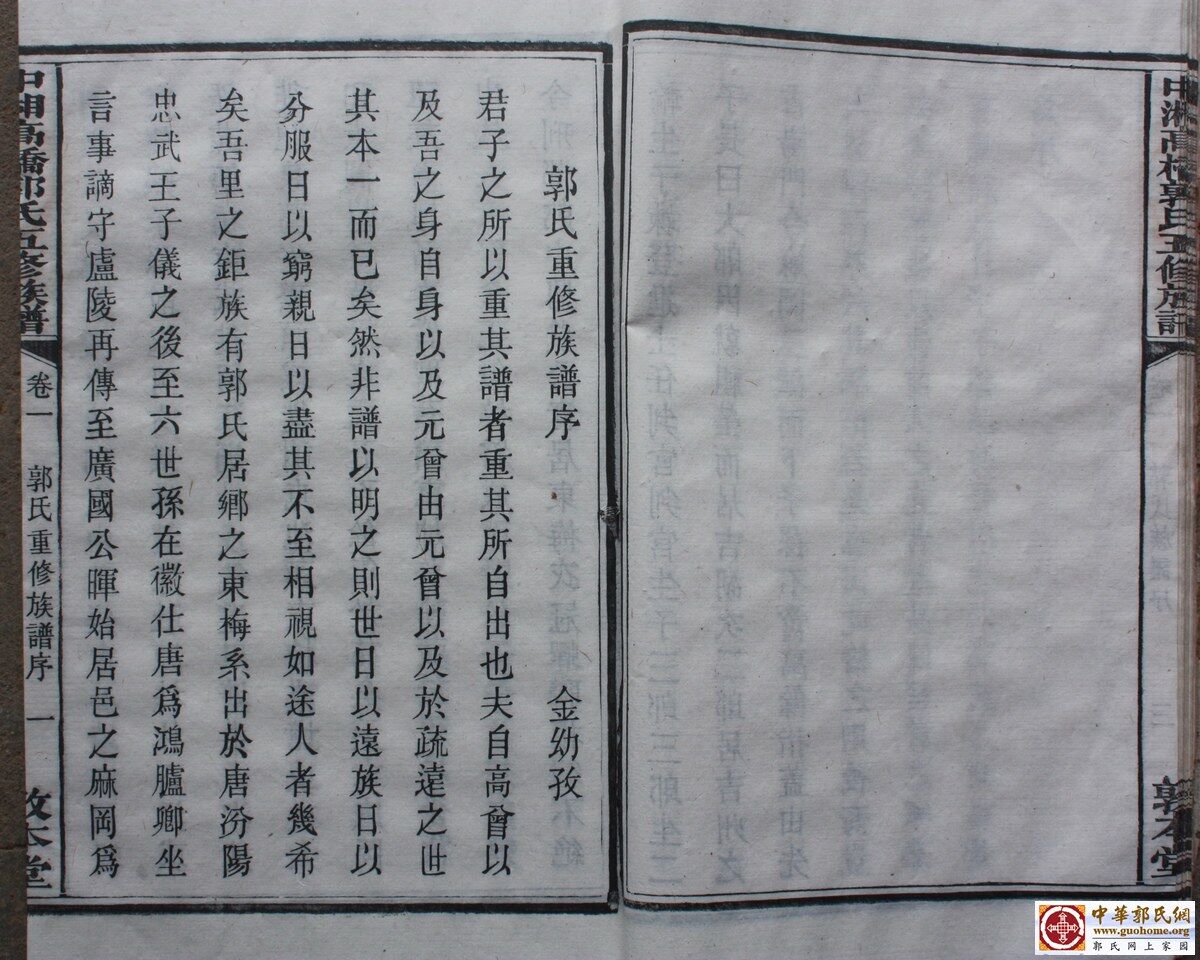 中湘高橋郭氏五修族譜
敦本堂
郭氏重修族譜序
金幼孜
君子之所以重其譜者重其所自出也夫自高曾以
及吾之身自身以及元曾由元曾以及於疏遠之世
其本一而已矣然非譜以明之則世日以遠族日以
分服日以窮親日以盡其不至相視如途人者幾希
矣吾里之鉅族有郭氏居鄉之東梅系出於唐汾陽
忠武王子儀之後至六世孫在徽仕唐爲鴻臚卿坐
言事謫守盧陵再傳至廣國公暉始居邑之麻岡爲
中湘高橋郭氏五修族譜
卷一
郭氏重修族譜序
一
敦本堂
中華郭氏網
www.guohome.org
郭氏网上家园